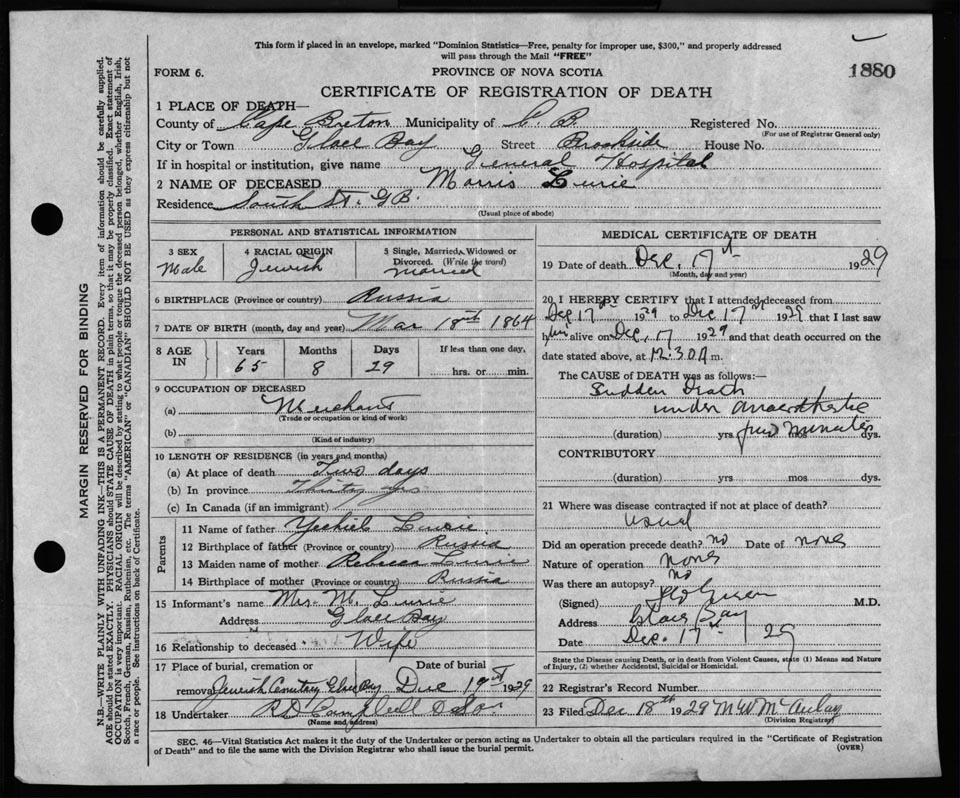 This form if placed in an envelope, marked "Dominion Statistics—Free, penalty for improper use, $300," and properly addressed
will pass through the Mail "FREE"
FORM 6.
PROVINCE OF NOVA SCOTIA
1880
CERTIFICATE OF REGISTRATION OF DEATH
1 PLACE OF DEATH—
County of Cape Breton Municipality of C. B. Registered No.
(For use of Registrar General only)
City or Town Glace Bay Street Brookside House No.
If in hospital or institution, give name General Hospital
2 NAME OF DECEASED Morris Lurie
Residence South St. G B.
(Usual place of abode)
PERSONAL AND STATISTICAL INFORMATION
3 SEX Male
4 RACIAL ORIGIN Jewish
5 Single, Married, Widowed or Divorced. (Write the word) Married
6 BIRTHPLACE (Province or country) Russia
7 DATE OF BIRTH (month, day and year) Mar 18th 1864
8 AGE IN
Years Months Days If less than one day,
65 8 29 hrs. or min.
9 OCCUPATION OF DECEASED
(a) Merchant
(Trade or occupation or kind of work)
(b)
(Kind of industry)
10 LENGTH OF RESIDENCE (in years and months)
(a) At place of death Two days
(b) In province Thirty yrs
(c) In Canada (if an immigrant)
Parents
11 Name of father Yechiel Lurie
12 Birthplace of father (Province or country) Russia
13 Maiden name of mother Rebecca Lurie
14 Birthplace of mother (Province or country) Russia
15 Informant's name Mrs. M. Lurie
Address Glace Bay
16 Relationship to deceased Wife
17 Place of burial, cremation or Date of burial
removal Jewish Cemetery Glace Bay Dec 19th 1929
18 Undertaker Campbell & Son
(Name and address)
MEDICAL CERTIFICATE OF DEATH
19 Date of death Dec. 17th 1929
(Month, day and year)
20 I HEREBY CERTIFY that I attended deceased from
Dec 17th 1929 to Dec 17th 1929 that I last saw
him alive on Dec. 17 1929 and that death occurred on the
date stated above, at 12.30 A m.
The CAUSE of DEATH was as follows:—
Sudden Death
under anaesthetic
(duration) yrs. few minutes mos. dys.
CONTRIBUTORY
(duration) yrs. mos. dys.
21 Where was disease contracted if not at place of death?
usual
Did an operation precede death? no Date of none
Nature of operation none
Was there an autopsy? no
(Signed) M.D.
Address Glace Bay
Date Dec. 17th 29
State the Disease causing Death, or in death from Violent Causes, state (1) Means and Nature
of Injury, (2) whether Accidental, Suicidal or Homicidal.
22 Registrar's Record Number
23 Filed Dec 18th 1929 M W McAulay
(Division Registrar)
SEC. 46—Vital Statistics Act makes it the duty of the Undertaker or person acting as Undertaker to obtain all the particulars required in the "Certificate of Registration
of Death" and to file the same with the Division Registrar who shall issue the burial permit.
(OVER)
MARGIN RESERVED FOR BINDING
N.B.—WRITE PLAINLY WITH UNFADING INK—THIS IS A PERMANENT RECORD. Every item of information should be carefully supplied.
AGE should be stated EXACTLY. PHYSICIANS should STATE CAUSE OF DEATH in plain terms, so that it may be properly classified. Exact statement of
OCCUPATION is very important. RACIAL ORIGIN will be described by stating to what people or tongue the deceased person belonged, whether English, Irish,
Scotch, French, German, Russian, Ruthenian, etc. The terms "AMERICAN" or "CANADIAN" SHOULD NOT BE USED as they express citizenship but not
a race or people. See instructions on back of Certificate.